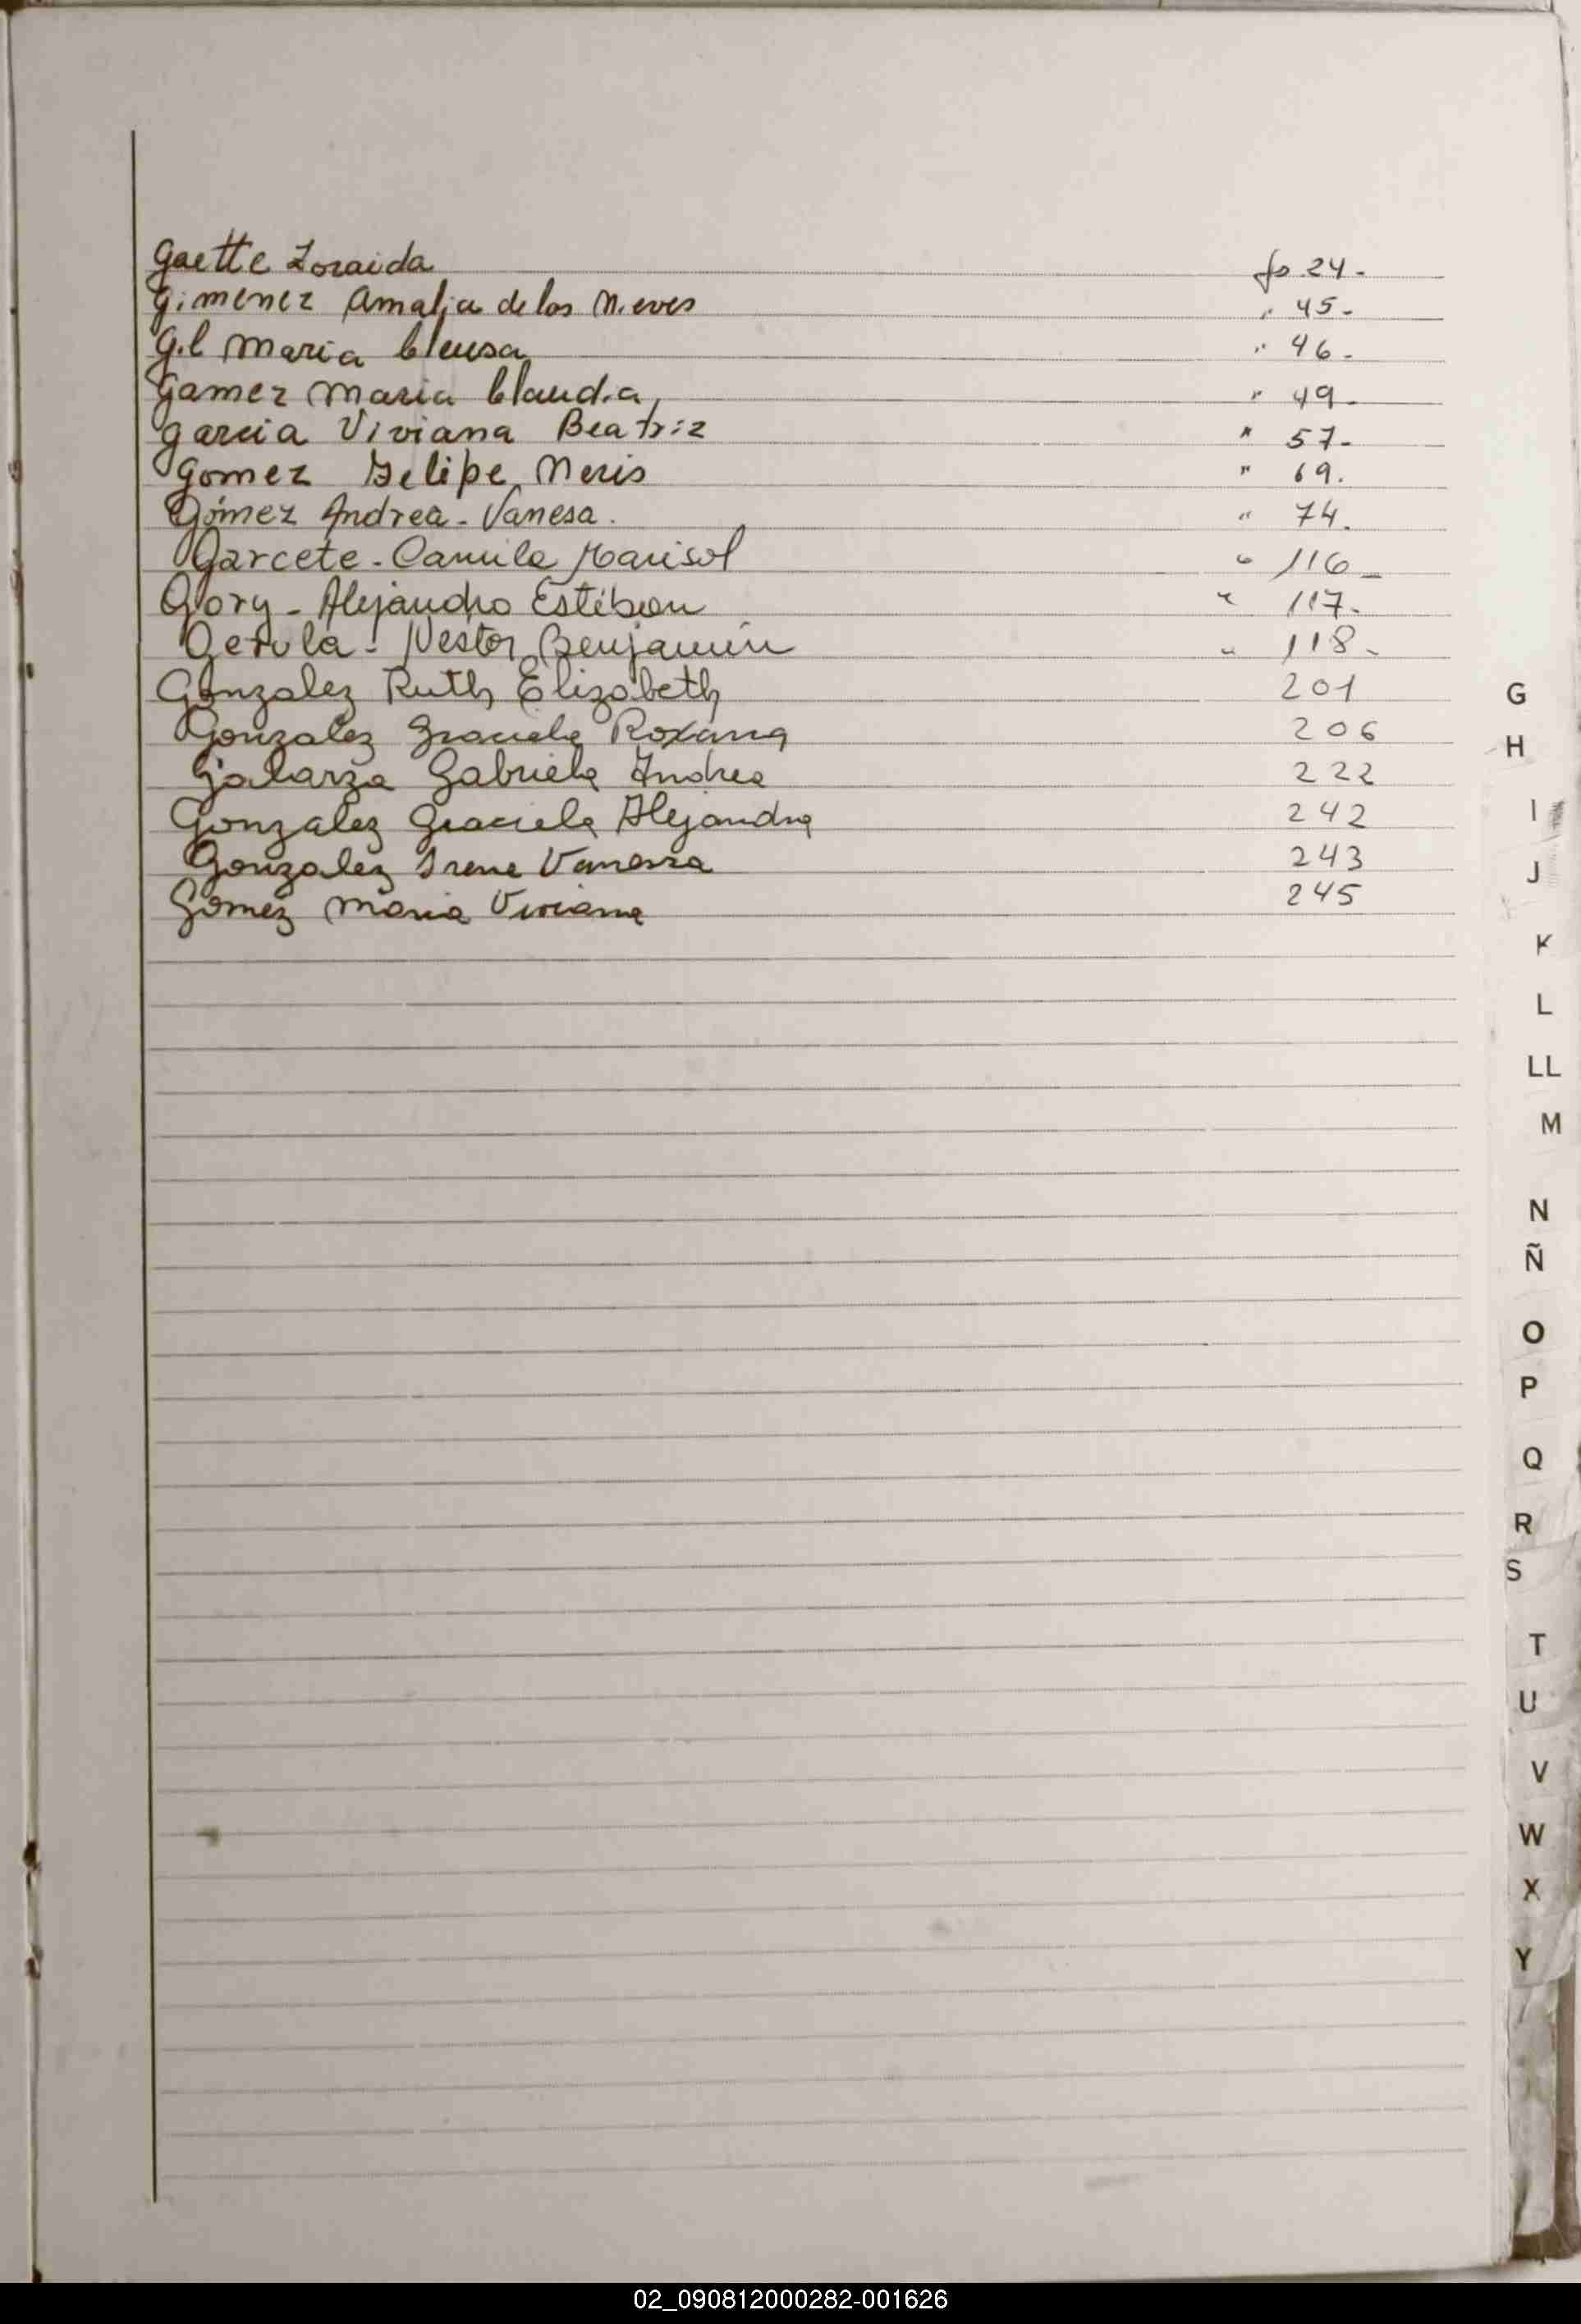 Gaette Zoraida fo 24-
Gimenez Amalia de las Nieves " 45-
Gil Maria Cleusa " 46-
Gamez Maria Claudia " 49-
Garcia Viviana Beatriz " 57-
Gomez Felipe Neris " 69.
Gómez Andrea - Vanesa. " 74.
Garcete - Camila Marisol " 116-
Gory - Alejandro Estiben " 117-
Gerula - Nestor Benjamín " 118-
Gonzalez Ruth Elizabeth 201
Gonzalez Graciela Roxana 206
Galarza Gabriela Andrea 222
Gonzalez Graciela Alejandra 242
Gonzalez Irene Vanessa 243
Gomez Maria Viviana 245
G
H
I
J
K
L
LL
M
N
Ñ
O
P
Q
R
S
T
U
V
W
X
Y
02_090812000282-001626